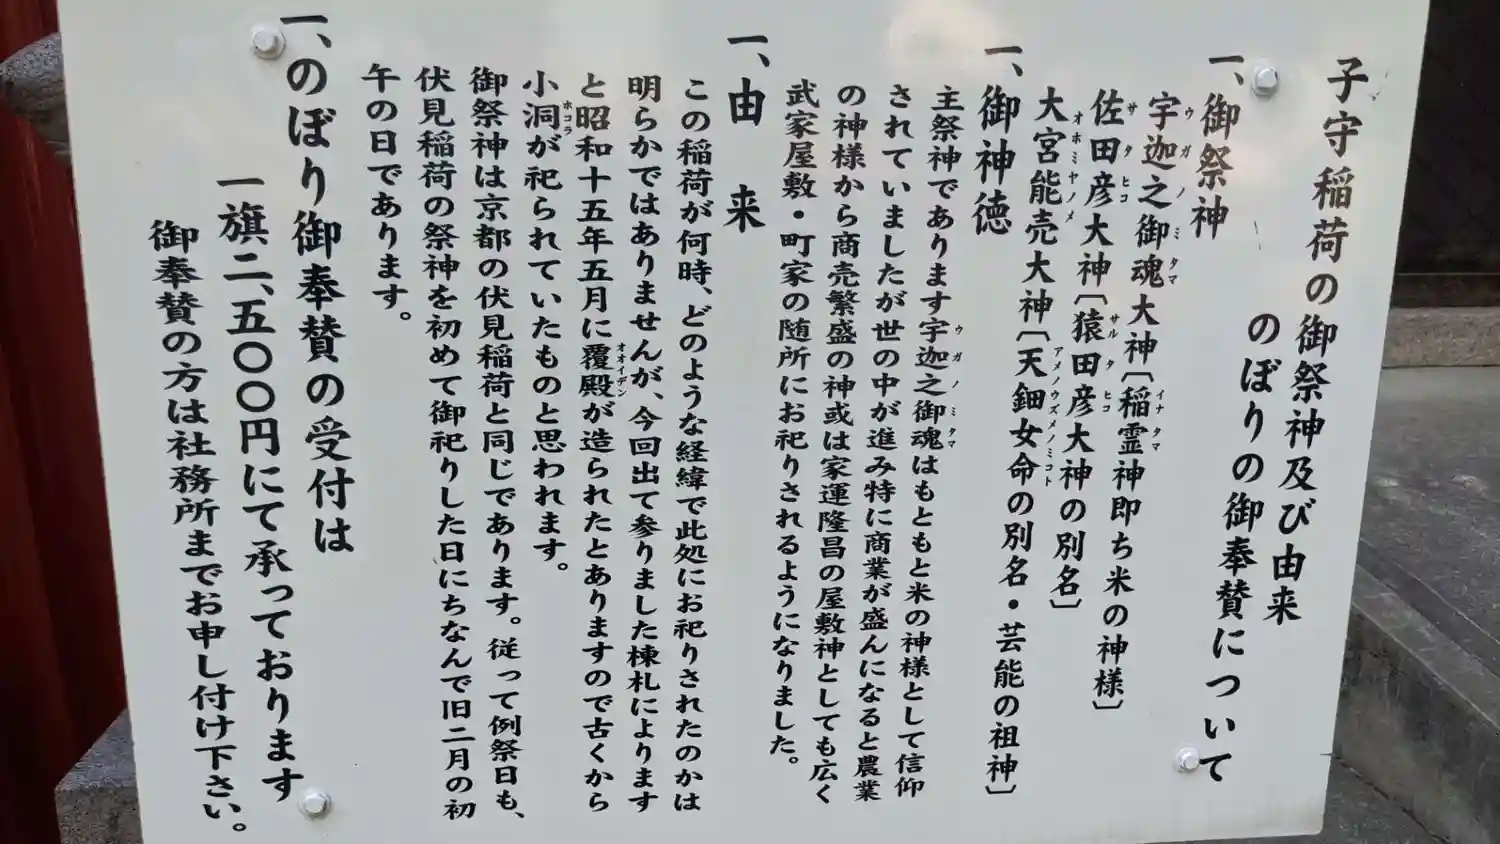 子守稲荷の御祭神及び由来
のぼりの御奉賛について
一、御祭神
宇迦之御魂大神〔稲霊神即ち米の神様〕
ウガノミタマ イナタマ
佐田彦大神〔猿田彦大神の別名〕
サタヒコ サルタヒコ
大宮能売大神〔天鈿女命の別名・芸能の祖神〕
オホミヤノメ アメノウズメノミコト
一、御神徳
主祭神であります宇迦之御魂はもともと米の神様として信仰
ウガノミタマ
されていましたが世の中が進み特に商業が盛んになると農業
の神様から商売繁盛の神或は家運隆昌の屋敷神としても広く
武家屋敷・町家の随所にお祀りされるようになりました。
一、由来
この稲荷が何時、どのような経緯で此処にお祀りされたのかは
明らかではありませんが、今回出て参りました棟札によります
と昭和十五年五月に覆殿が造られたとありますので古くから
オオイデン
小洞が祀られていたものと思われます。
ホコラ
御祭神は京都の伏見稲荷と同じであります。従って例祭日も、
伏見稲荷の祭神を初めて御祀りした日にちなんで旧二月の初
午の日であります。
一、のぼり御奉賛の受付は
一旗二、五〇〇円にて承っております
御奉賛の方は社務所までお申し付け下さい。